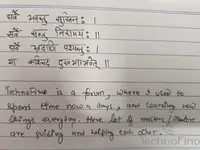 सर्वे भवन्तु सुखिनः ।
सर्वे सन्तु निरामयः ॥
सर्वे भद्राणि पश्यन्तु ।
मा कश्चिद् दुःखभाग्भवेत् ॥
TechnoFino is a forum, where I used to
spend time now a days, and learning new
things everyday. Here lot of masters/mentors
are guiding and helping each other.
TECHNOFINO